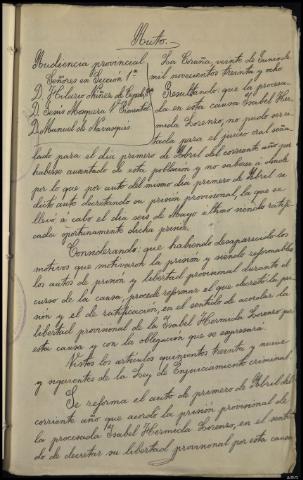 Auto.
Audiencia provincial
Señores en Sección 1ª
D. Hilario Núñez de
D. Jesús Mosquera V. Pimentel
D. Manuel de
La Coruña, veinte de Junio de
mil novecientos treinta y ocho
Resultando, que la procesa-
da en esta causa Isabel Her-
mida Lorenzo, no pudo ser ci-
tada para el juicio oral seña-
lado para el día primero de Abril del corriente año por
haberse ausentado de esta población y no saberse a donde
por lo que por auto del mismo día primero de Abril se
dictó auto decretando su prisión provisional, la que se
llevó a cabo el día seis de Mayo último siendo ratifi-
cada oportunamente dicha prisión.
Considerando: que habiendo desaparecido los
motivos que motivaron la prisión y siendo reformables
los autos de prision y libertad provisional durante el
curso de la causa, procede reformar el que decretó la pri-
sión y el de ratificación, en el sentido de acordar la
libertad provisional de la Isabel Hermida Lorenzo por
esta causa y con la obligacion que se expresará.
Vistos los artículos quinientos treinta y nueve
y siguientes de la Ley de Enjuiciamiento criminal
Se reforma el auto de primero de Abril del
corriente año que acordó la prisión provisional de
la procesada Isabel Hermida Lorenzo, en el senti-
do de decretar su libertad provisional por esta causa